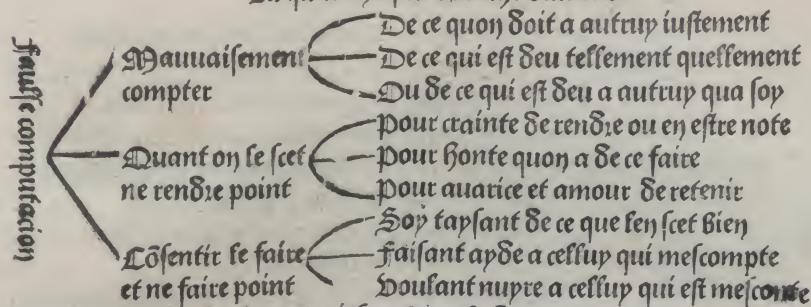 fausse computacion
Mauuaisement
compter
De ce quon doit a autruy iustement
De ce qui est deu tellement quellement
Ou de ce qui est deu a autruy qua soy
Quant on le scet
ne rendre point
Pour crainte de rendre ou en estre note
Pour honte quon a de ce faire
Pour auarice et amour de retenir
Cõsentir le faire
et ne faire point
Soy taysant de ce que len scet bien
Faisant ayde a celluy qui mescompte
Voulant nuyre a celluy qui est mesconte